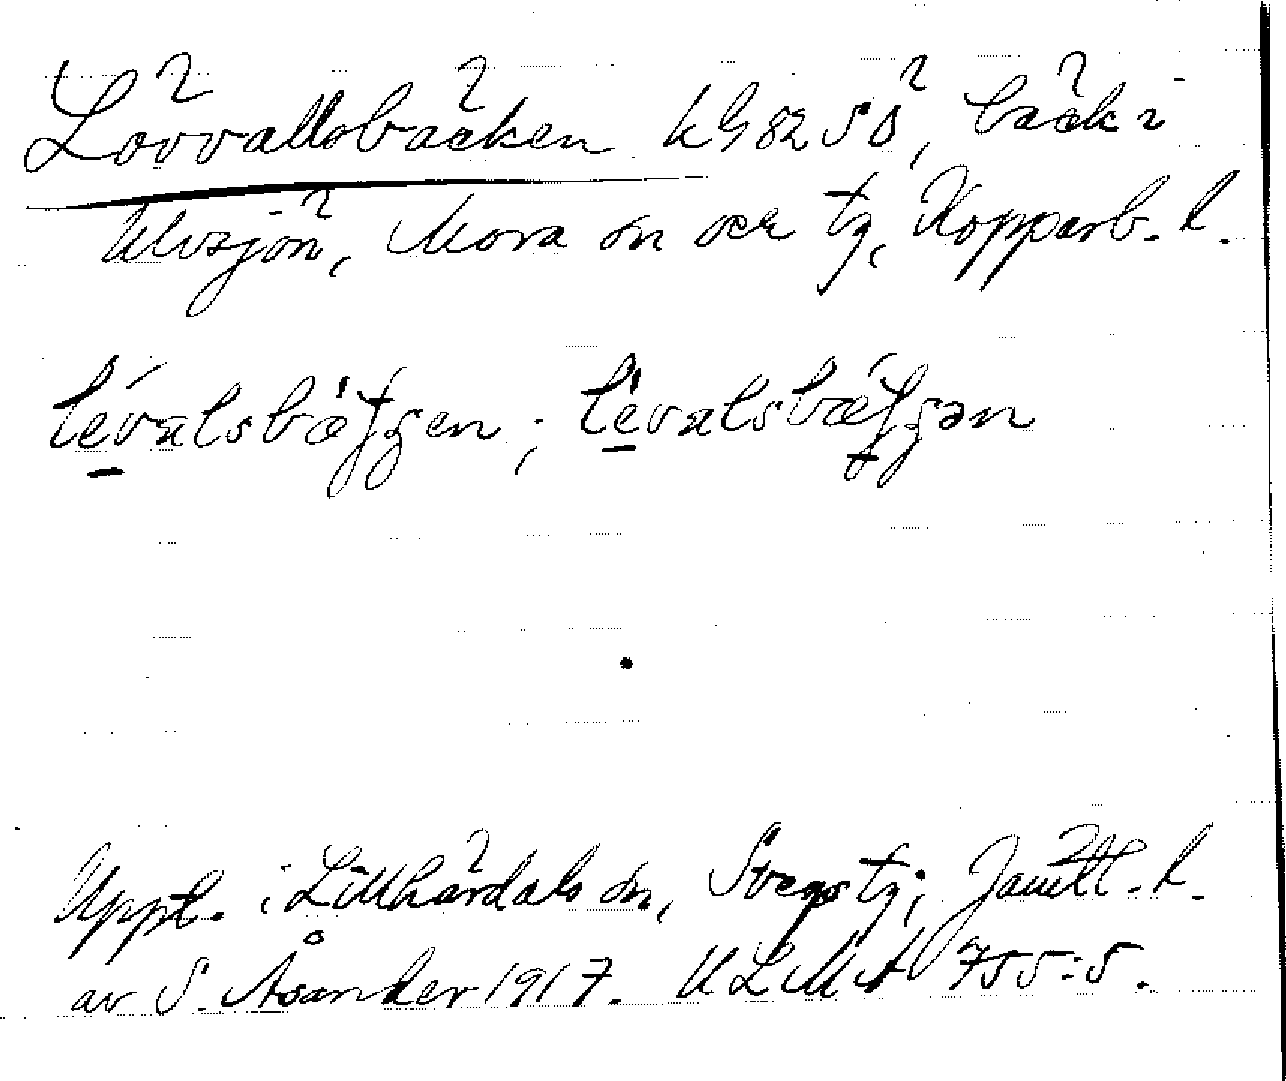 Lövvallsbäcken kG 82 SÖ, bäck i
Ulvsjön, Mora sn och tg, Kopparb. l.
lévalsbæ̀ʃʒen; lévalsbæʃʒən
Uppt. i Lillhärdals sn, Svegs tg, Jämtl. l.
av S. Åsanker 1917. ULMA 755:5.